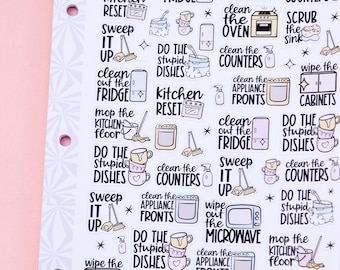 kitchen
RESET
clean out the
FRIDGE
clean
THE
OVEN
SCRUB
the
sink
sweep
IT
UP
DO THE
stupid
DISHES
clean the
COUNTERS
wipe the
CABINETS
clean
out the
FRIDGE
kitchen
RESET
clean the
APPLIANCE
FRONTS
mop the
KITCHEN
floor
clean
out the
FRIDGE
DO THE
stupid
DISHES
DO THE
stupid
DISHES
clean the
COUNTERS
sweep
IT
UP
clean the
COUNTERS
sweep
IT
UP
clean the
APPLIANCE
FRONTS
wipe
out the
MICROWAVE
DO THE
stupid
DISHES
DO THE
stupid
DISHES
mop the
KITCHEN
floor
wipe the
clean the